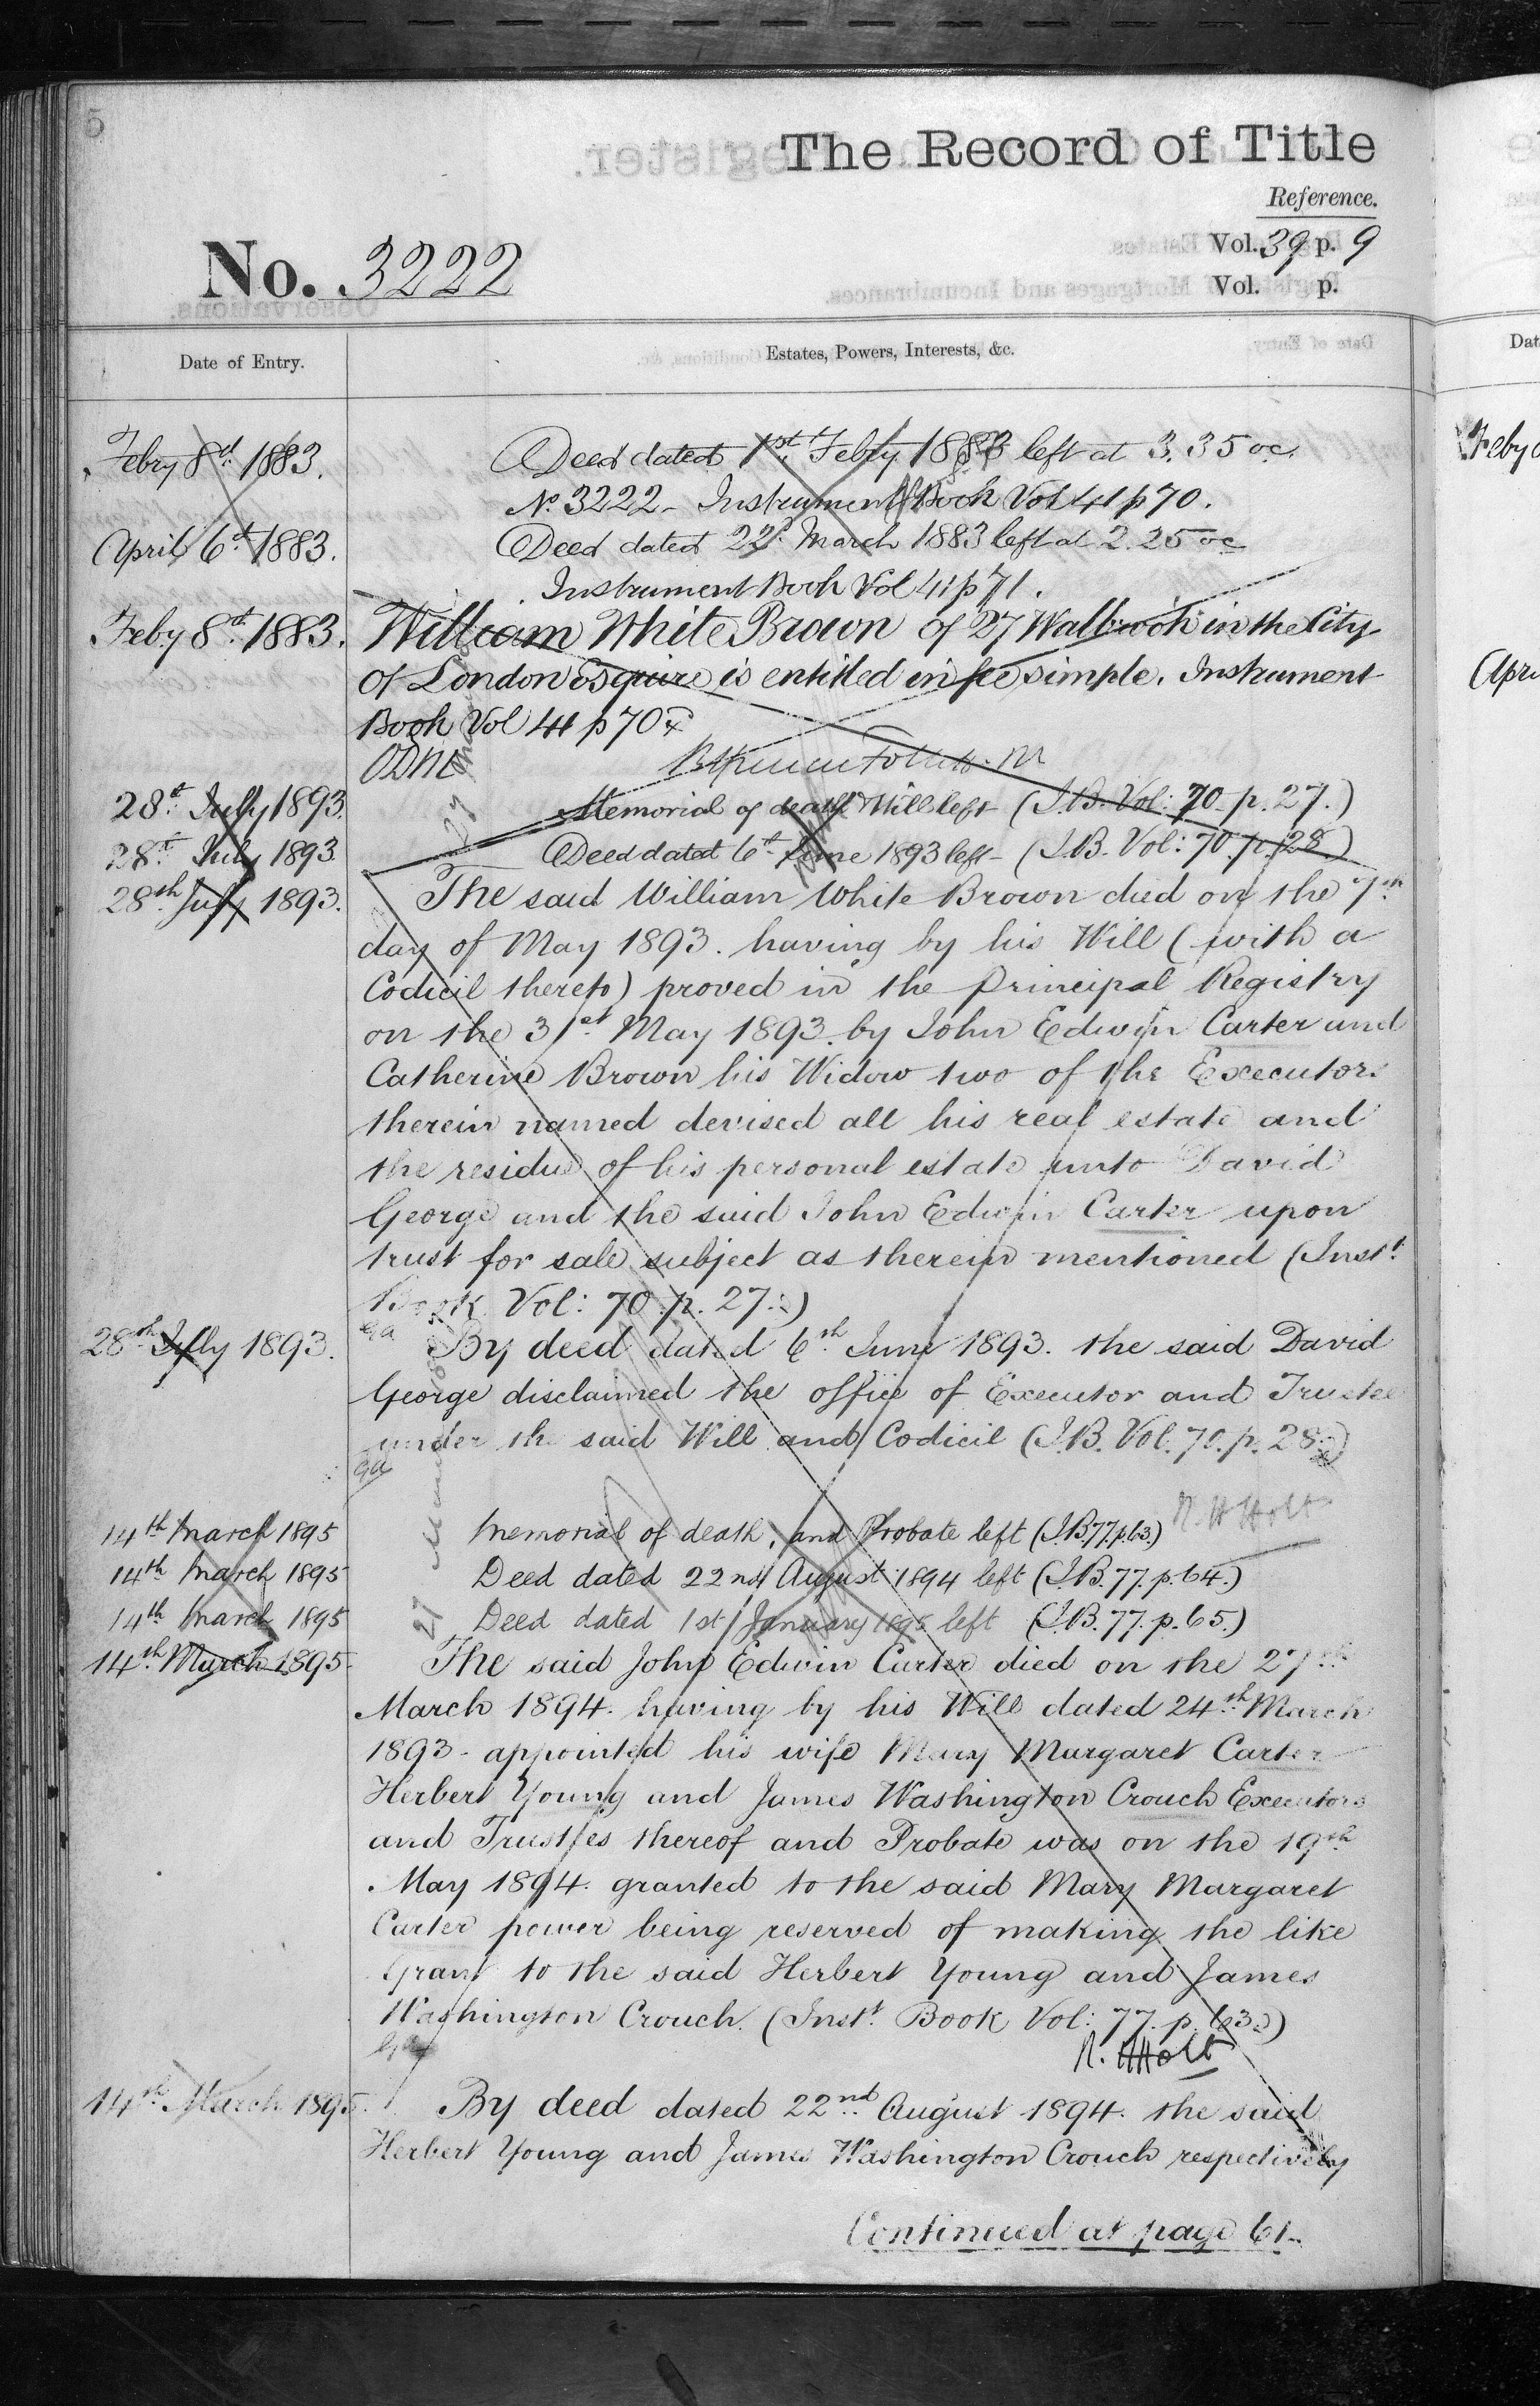 5
The Record of Title
Reference.
Vol. 39 p. 9
No. 3222
Vol. p.
Date of Entry.
Estates, Powers, Interests, &c.
Febry 8th 1883. Deed dated 1st Febry 1883 left at 3.35 oc.
No. 3222 - Instrument Book Vol 41 p 70.
April 6th 1883. Deed dated 22d March 1883 left at 2.25 oc
Instrument Book Vol 41 p 71.
Feby 8th 1883. William White Brown of 27 Walbrook in the City
of London Esquire is entitled in fee simple. Instrument
Book Vol 41 p 70
28th July 1893. Memorial of death & Will left (I.B. Vol: 70 p. 27.)
28th July 1893 Deed dated 6th June 1893 left - (I.B. Vol: 70. p. 28)
28th July 1893. The said William White Brown died on the 7th
day of May 1893. having by his Will (with a
Codicil thereto) proved in the Principal Registry
on the 31st May 1893. by John Edwin Carter and
Catherine Brown his Widow two of the Executors
therein named devised all his real estate and
the residue of his personal estate unto David
George and the said John Edwin Carter upon
trust for sale subject as therein mentioned (Instt.
Book Vol: 70. p. 27.)
28th July 1893. By deed dated 6th June 1893. the said David
George disclaimed the office of Executor and Trustee
under the said Will and Codicil (I.B. Vol. 70. p. 28.)
R. H Holt
14th March 1895 Memorial of death, and Probate left (I.B. 77. p. 63.)
14th March 1895 Deed dated 22nd August 1894 left (I.B. 77. p. 64.)
14th March 1895 Deed dated 1st January 1895 left (I.B. 77. p. 65.)
14th March 1895. The said John Edwin Carter died on the 27th
March 1894. having by his Will dated 24th March
1893 - appointed his wife Mary Margaret Carter
Herbert Young and James Washington Crouch Executors
and Trustees thereof and Probate was on the 19th
May 1894. granted to the said Mary Margaret
Carter power being reserved of making the like
Grant to the said Herbert Young and James
Washington Crouch. (Instt. Book Vol: 77. p. 63.)
R. H Holt
14th March 1895. By deed dated 22nd August 1894. the said
Herbert Young and James Washington Crouch respectively
Continued at page 61
Dat
Feby
Apri